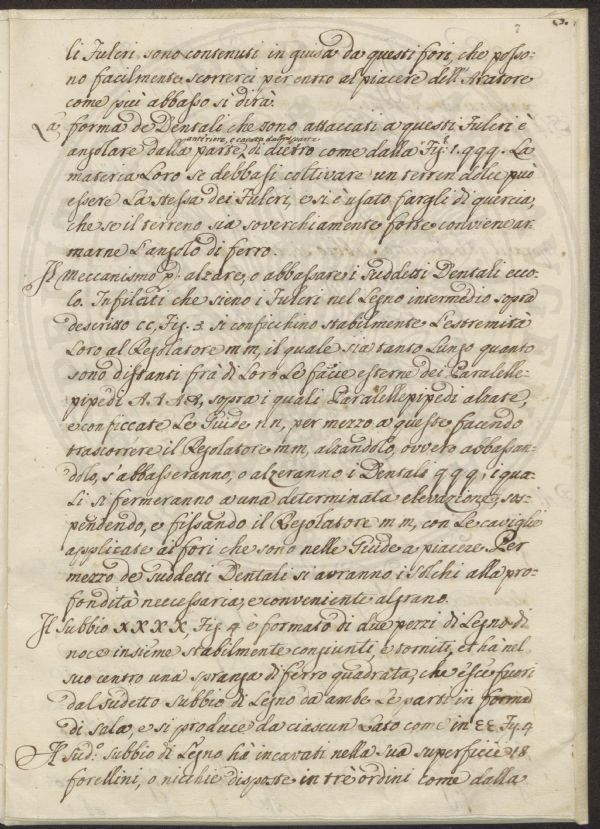 7
li Fulcri sono contenuti in guisa da questi fori, che posso-
no facilmente scorrerci per entro al piacere dell'Aratore
come più abbasso si dirà.
La forma de Dentali che sono attaccati a questi Fulcri è
angolare dalla parte di dietro come dalla Fig.ª 1. qqq. La
materia Loro se debbasi coltivare un terren dolce può
essere La stessa dei Fulcri, e si è usato fargli di quercia,
che se il terreno sia soverchiamente forte conviene ar-
marne L'angolo di ferro.
Il Meccanismo p: alzare, o abbassare i suddetti Dentali ecco-
lo. Infilciti che sieno i Fulcri nel Legno intermedio sopra
descritto cc, Fig. 3 si conficchino stabilmente L'estremità
Loro al Regolatore mm, il quale sia tanto Lungo quanto
sono distanti frà di Loro Le facie esterne dei Paralelle-
pipedi A.A.A.A, sopra i quali Paralellepipedi alzate,
e conficcate Le Guide nn, per mezzo a queste facendo
trascorrere il Regolatore mm, alzandolo, ovvero abbassan-
dolo, s'abbasseranno, o alzeranno i Dentali qqq, i qua-
li si fermeranno a una determinata elevazione, sos-
pendendo, e fissando il Regolatore mm, con Le caviglie
applicate ai fori che sono nelle Guide a piacere. Per
mezzo de suddetti Dentali si avranno i solchi alla pro-
fondità necessaria, e conveniente al grano.
Il subbio XXXX, Fig. 4 è formato di due pezzi di Legno di
noce insieme stabilmente congiunti, e torniti, et hà nel
suo centro una spranga di ferro quadrata, che esce fuori
dal sudetto subbio di Legno da ambe Le parti in forma
di sala, e si produce da ciascun Lato come in EE Fig. 4
Il sud.º subbio di Legno hà incavati nella sua superficie 48
forellini, o nicchie disposte in trè ordini come dalla